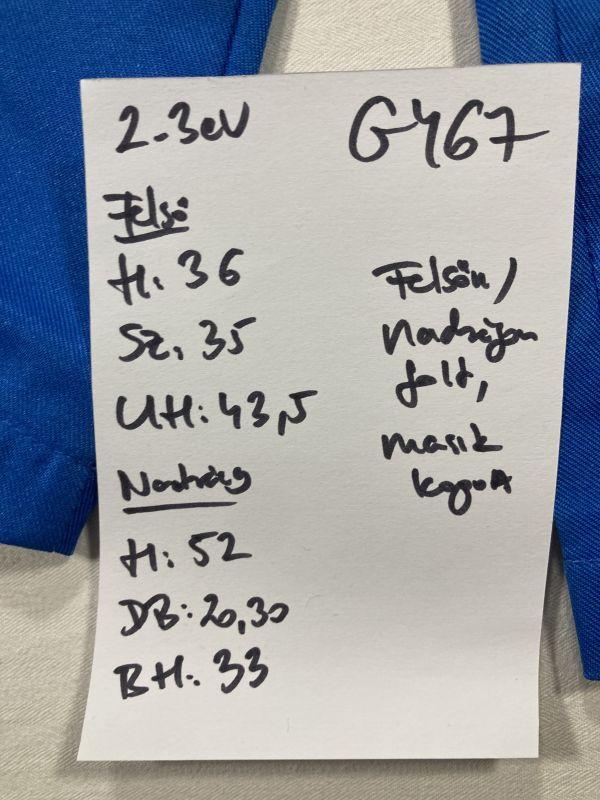 2-3 év
G467
Felső
H: 36
Sz: 35
UH: 43,5
Nadrág
H: 52
DB: 20,30
BH: 33
Felsőn/
Nadrágon
folt,
masik
kopott